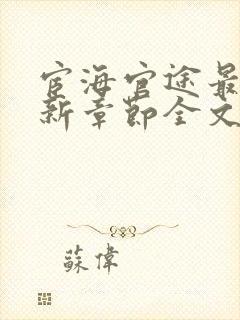 宦海官途最
新章節全文
蘇偉